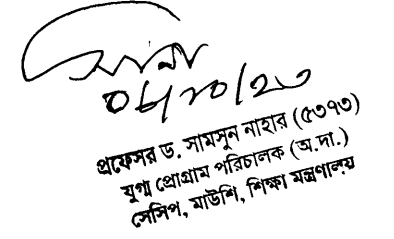 ০৮/১০/২৩
প্রফেসর ড. সামসুন নাহার (৫৩৭৩)
যুগ্ম প্রোগ্রাম পরিচালক (অ.দা.)
সেসিপ, মাউশি, শিক্ষা মন্ত্রণালয়